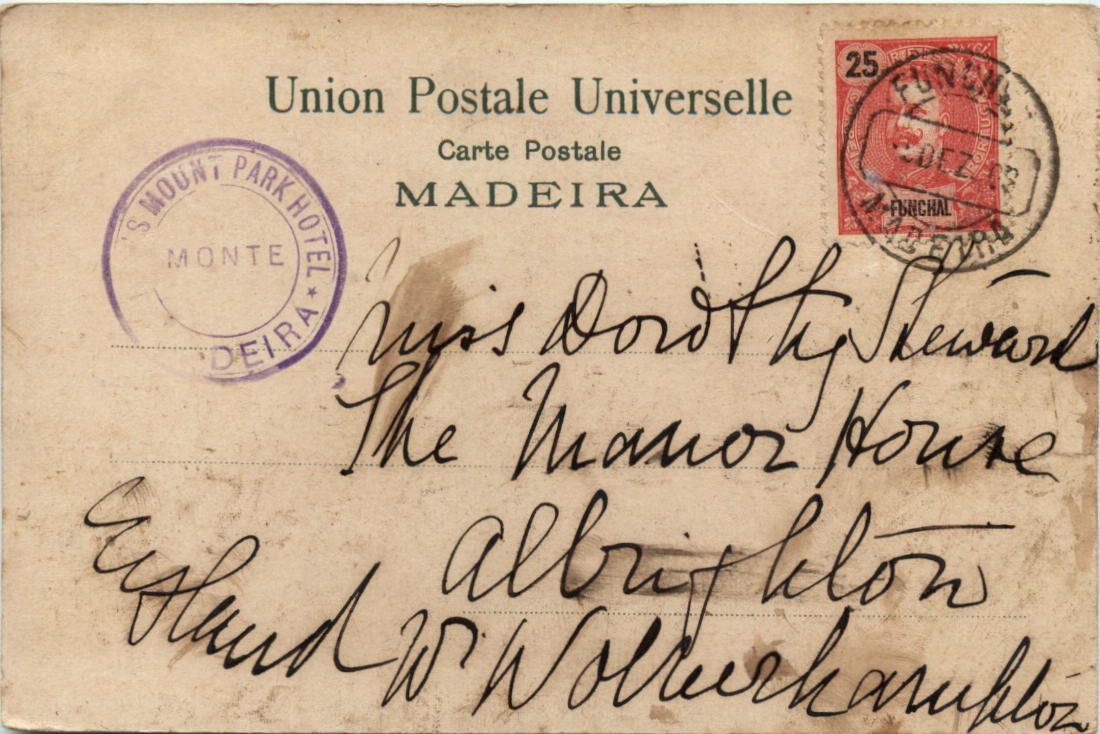 Union Postale Universelle
Carte Postale
MADEIRA
25
FUNCHAL
FUNCHAL
DEZ
MADEIRA
'S MOUNT PARK HOTEL
MONTE
DEIRA
Miss Dorothy Steward
The Manor House
Albrighton
Wolverhampton
England